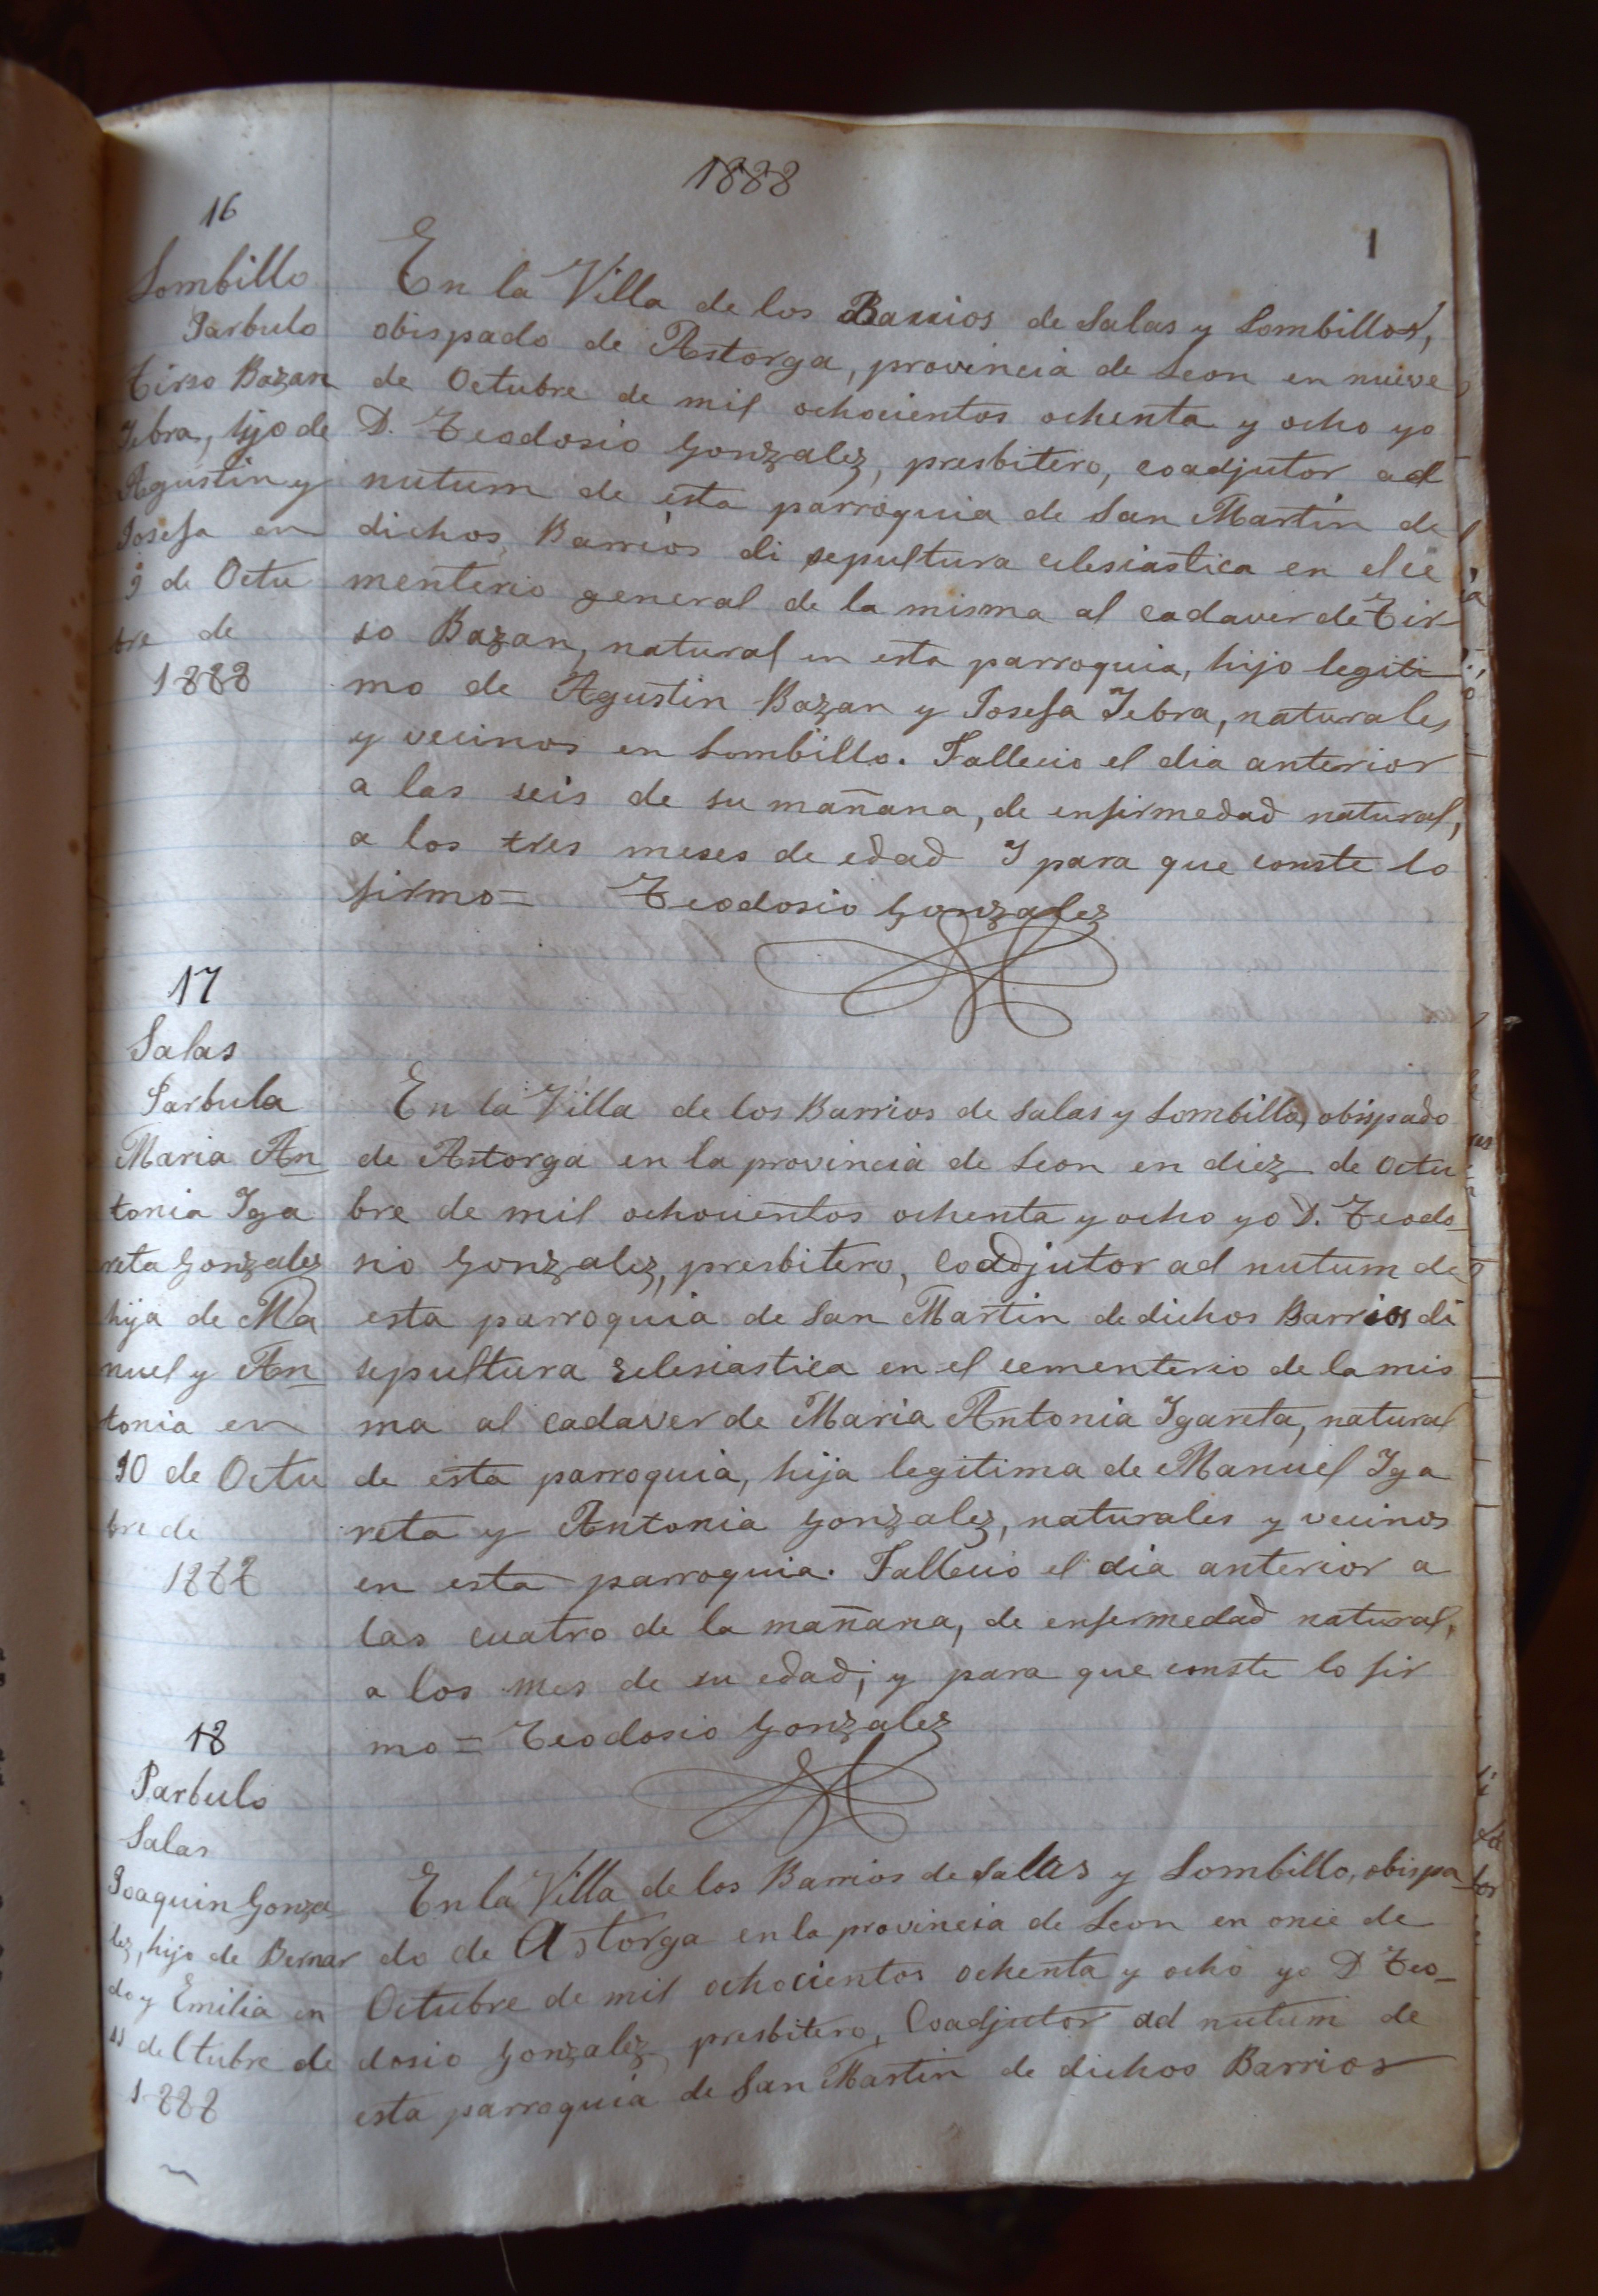 1888
1
16
Lombillo
Parbulo
Tirso Bazan
Yebra, hijo de
Agustin y
Josefa en
9 de Octu
bre de
1888
En la Villa de los Barrios de Salas y Lombillo,
obispado de Astorga, provincia de Leon en nueve
de Octubre de mil ochocientos ochenta y ocho yo
D. Teodosio Gonzalez, presbitero, coadjutor ad
nutum de esta parroquia de San Martin de
dichos Barrios di sepultura eclesiastica en el ce
menterio general de la misma al cadaver de Tir
so Bazan, natural en esta parroquia, hijo legiti
mo de Agustin Bazan y Josefa Yebra, naturales
y vecinos en Lombillo. Fallecio el dia anterior
a las seis de su mañana, de enfirmedad natural,
a los tres meses de edad Y para que conste lo
firmo= Teodosio Gonzalez
17
Salas
Parbula
Maria An
tonia Yga
reta Gonzalez
hija de Ma
nuel y An
tonia en
10 de Octu
bre de
1888
En la Villa de los Barrios de Salas y Lombillo, obispado
de Astorga en la provincia de Leon en diez de Octu
bre de mil ochocientos ochenta y ocho yo D. Teodo
sio Gonzalez, presbitero, Coadjutor ad nutum de
esta parroquia de San Martin de dichos Barrios di
sepultura eclesiastica en el cementerio de la mis
ma al cadaver de Maria Antonia Ygareta, natural
de esta parroquia, hija legitima de Manuel Yga
reta y Antonia Gonzalez, naturales y vecinos
en esta parroquia. Fallecio el dia anterior a
las cuatro de la mañana, de enfermedad natural,
a los mes de su edad; y para que conste lo fir
mo= Teodosio Gonzalez
18
Parbulo
Salas
Joaquin Gonza
lez, hijo de Bernar
do y Emilia en
11 de Ctubre de
1888
En la Villa de los Barrios de Salas y Lombillo, obispa
do de Astorga en la provincia de Leon en once de
Octubre de mil ochocientos ochenta y ocho yo D Teo-
dosio Gonzalez presbitero, Coadjutor ad nutum de
esta parroquia de San Martin de dichos Barrios